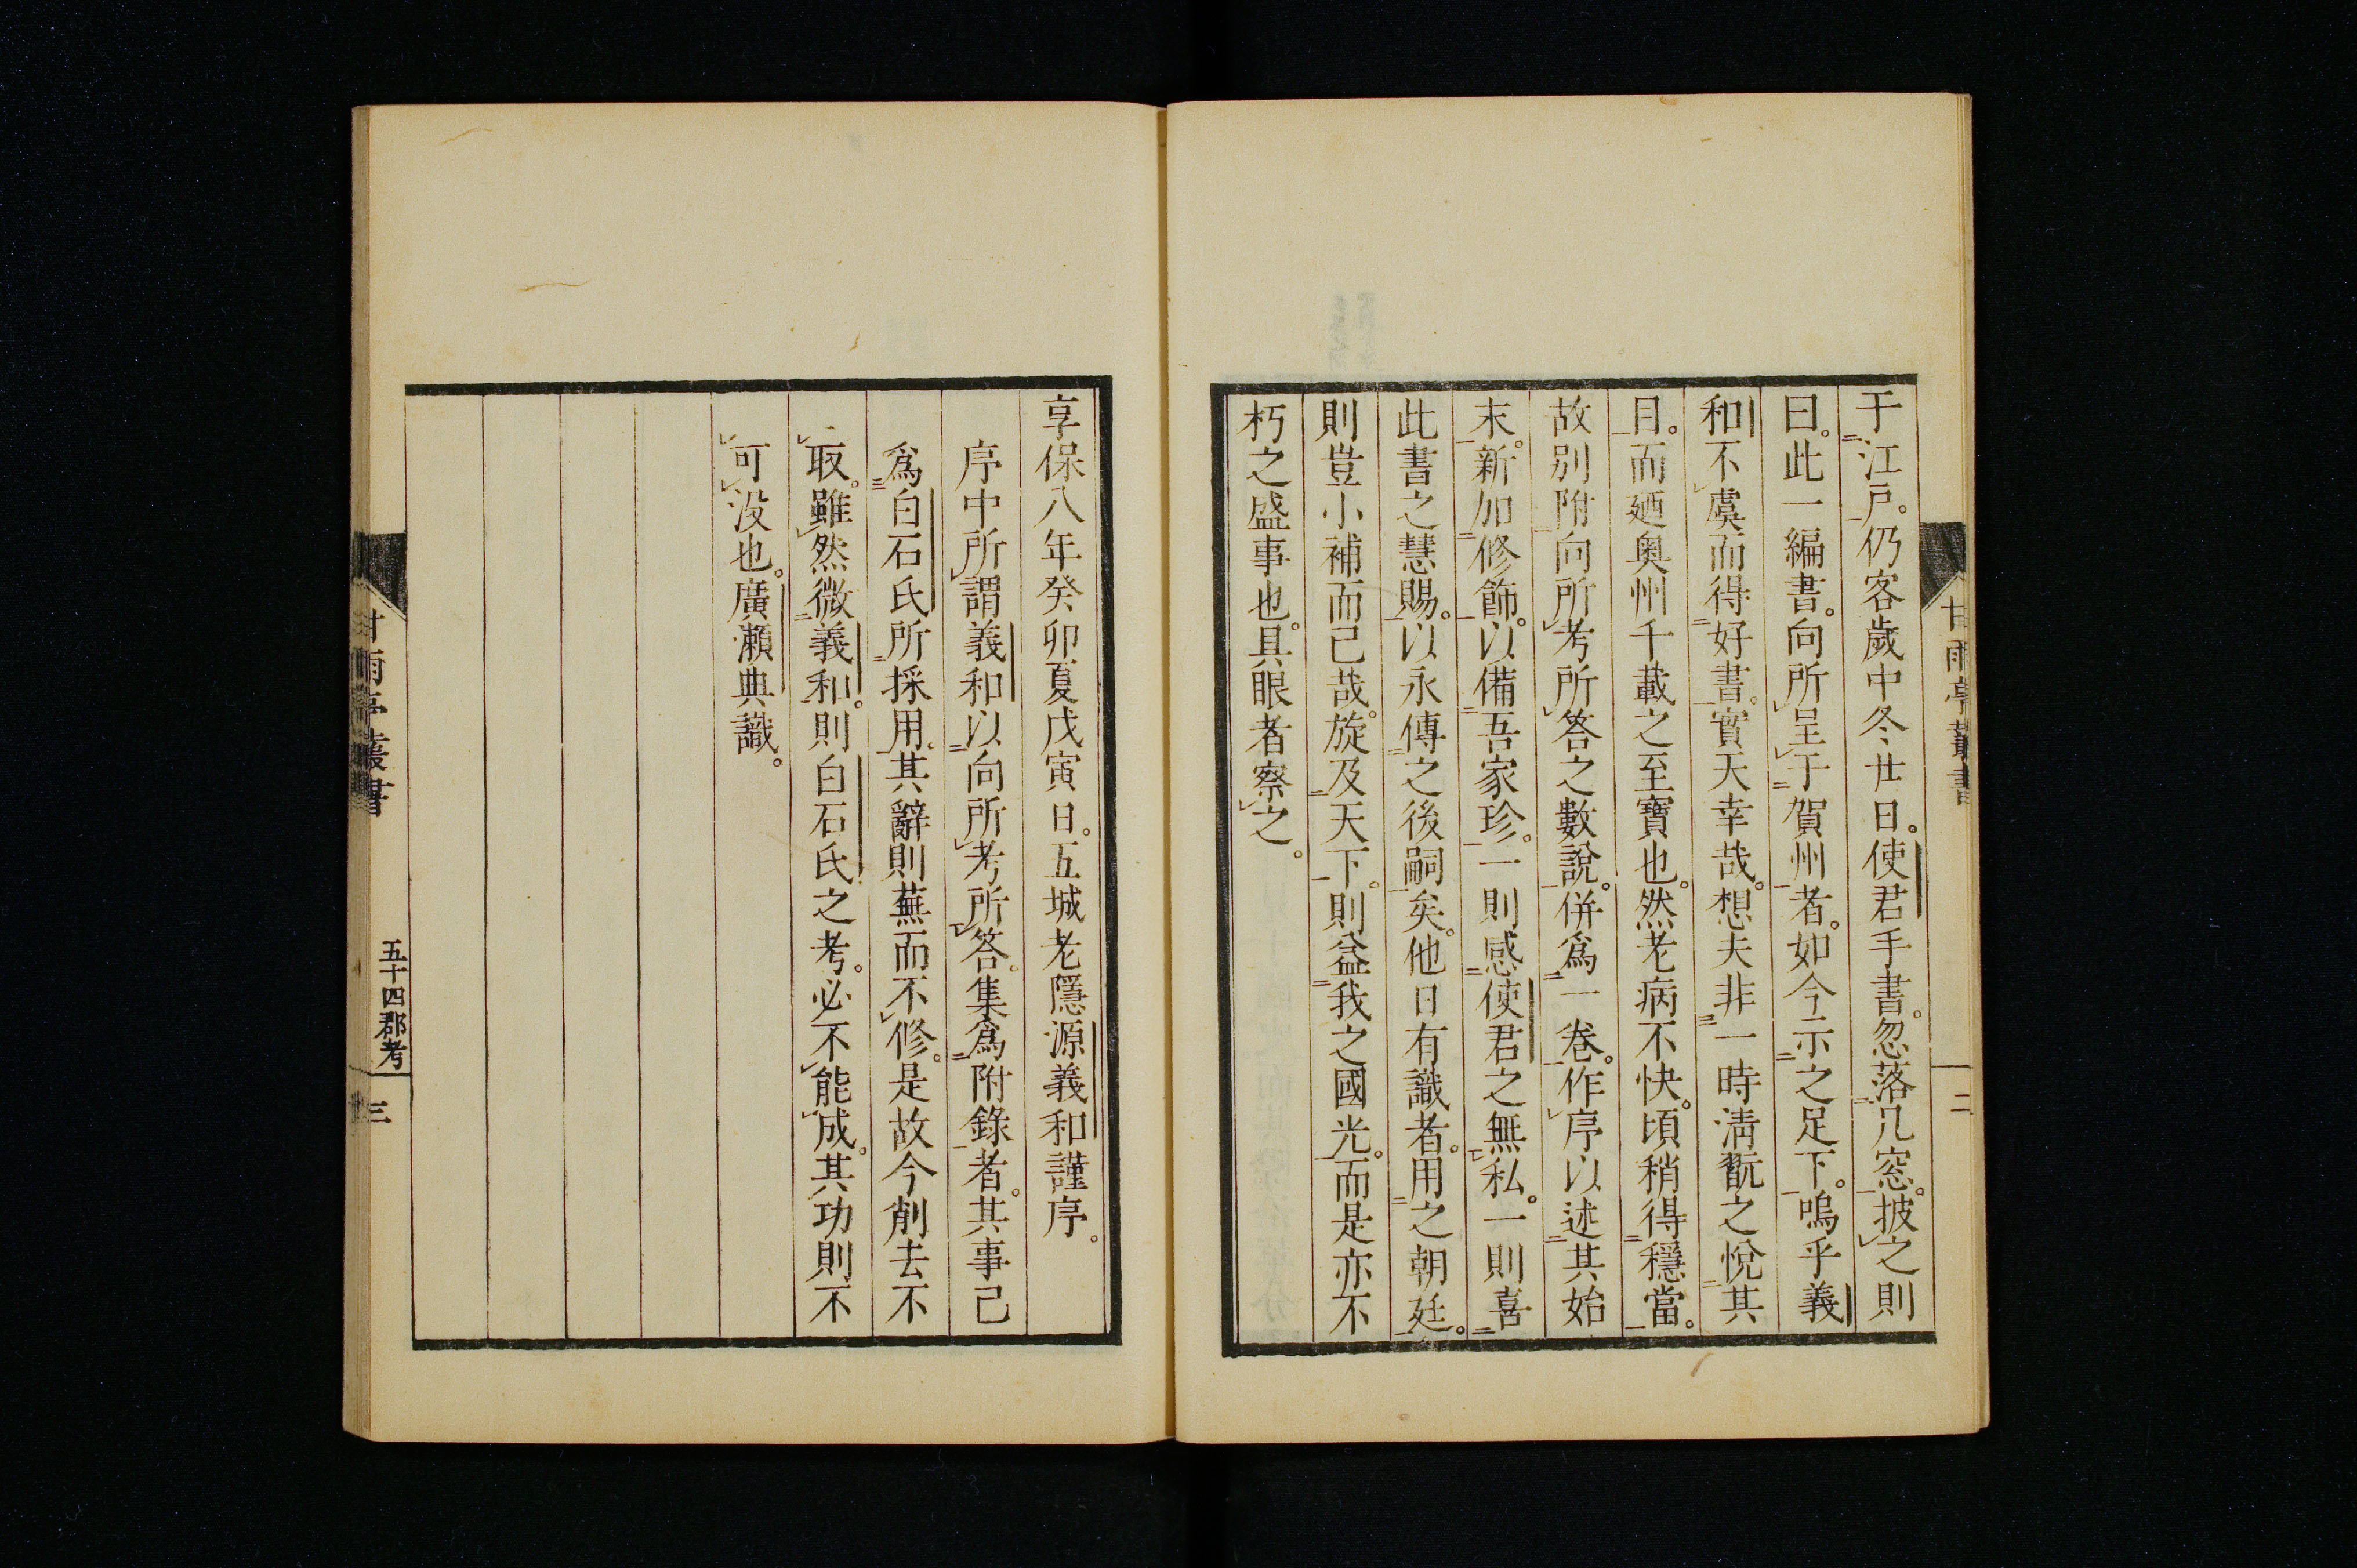 于江戸。仍客歲中冬廿日。使君手書。忽落几窓。披之則
曰。此一編書。向所呈于賀州者。如今示之足下。嗚乎義
和不虞而得好書。實天幸哉。想夫非一時淸翫之悅其
目。而廼奥州千載之至寶也。然老病不快。頃稍得穩當。
故別附向所考所答之數說。併爲一卷。作序以述其始
末。新加修飾。以備吾家珍。一則感使君之無私。一則喜
此書之慧賜。以永傳之後嗣矣。他日有識者。用之朝廷。
則豈小補而已哉。旋及天下。則益我之國光。而是亦不
朽之盛事也。具眼者察之。
甘雨亭叢書
二
享保八年癸卯夏戊寅日。五城老隱源義和謹序。
序中所謂義和以向所考所答。集爲附錄者。其事已
爲白石氏所採用。其辭則蕪而不修。是故今削去不
取。雖然微義和。則白石氏之考。必不能成。其功則不
可沒也。廣瀬典識。
甘雨亭叢書
五十四郡考
三